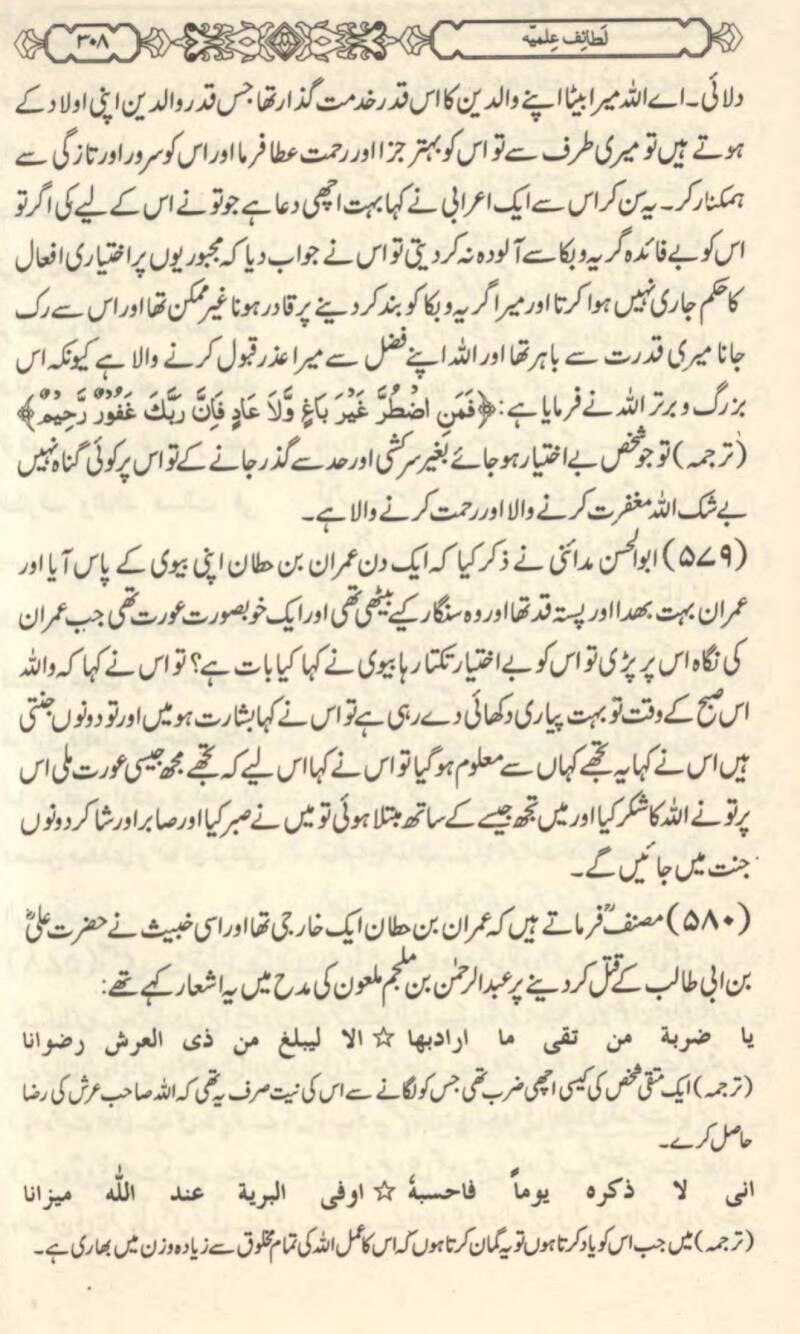 لَطائِف عِلمیّه
۳۰۸
دلائی۔ اے اللہ میرا بیٹا اپنے والدین کا اس قدر خدمت گذار تھا جس قدر والدین اپنی اولاد کے
ہوتے ہیں تو میری طرف سے تو اس کو بہتر جزا اور رحمت عطا فرما اور اس کو سرور اور تازگی سے
ہمکنار کر۔ یہ سن کر اس سے ایک اعرابی نے کہا بہت اچھی دعا ہے جو تو نے اس کے لیے کی اگر تو
اس کو بے فائدہ گریہ و بکا سے آلودہ نہ کر دیتی تو اس نے جواب دیا کہ مجبوریوں پر اختیاری افعال
کا حکم جاری نہیں ہوا کرتا اور میرا گریہ و بکا کو بند کر دینے پر قادر ہونا غیر ممکن تھا اور اس سے رک
جانا میری قدرت سے باہر تھا اور اللہ اپنے فضل سے میرا عذر قبول کرنے والا ہے کیونکہ اس
بزرگ و برتر اللہ نے فرمایا ہے: ﴿فَمَنِ اضْطُرَّ غَیْرَ بَاغٍ وَّلَا عَادٍ فَاِنَّ رَبَّکَ غَفُوْرٌ رَّحِیْمٌ﴾
(ترجمہ) تو جو شخص بے اختیار ہو جائے بغیر سرکشی اور حد سے گذر جانے کے تو اس پر کوئی گناہ نہیں
بے شک اللہ مغفرت کرنے والا اور رحمت کرنے والا ہے۔
(۵۷۹) ابوالحسن مدائنی نے ذکر کیا کہ ایک دن عمران بن حطان اپنی بیوی کے پاس آیا اور
عمران بہت بھدا اور پستہ قد تھا اور وہ سنگار کیے بیٹھی تھی اور ایک خوبصورت عورت تھی جب عمران
کی نگاہ اس پر پڑی تو اس کو بے اختیار تکتا رہا بیوی نے کہا کیا بات ہے؟ تو اس نے کہا کہ واللہ
اس صبح کے وقت تو بہت پیاری دکھائی دے رہی ہے تو اس نے کہا بشارت ہو میں اور تو دونوں جنتی
ہیں اس نے کہا یہ تجھے کہاں سے معلوم ہو گیا تو اس نے کہا اس لیے کہ تجھے مجھ جیسی عورت ملی اس
پر تو نے اللہ کا شکر کیا اور میں تجھ جیسے کے ساتھ مبتلا ہوئی تو میں نے صبر کیا اور صابر اور شاکر دونوں
جنت میں جائیں گے۔
(۵۸۰) مصنفؒ فرماتے ہیں کہ عمران بن حطان ایک خارجی تھا اور اسی خبیث نے حضرت علیؓ
بن ابی طالب کے قتل کر دینے پر عبدالرحمٰن بن ملجم ملعون کی مدح میں یہ اشعار کہے تھے:
یا ضربة من تقی ما ارادبها ☆ الا لیبلغ من ذی العرش رضوانا
(ترجمہ) ایک متقی شخص کی کیسی اچھی ضرب تھی جس کو لگانے سے اس کی نیت صرف یہ تھی کہ اللہ صاحب عرش کی رضا
حاصل کرے۔
انی لا ذکره یوماً فاحسبهٗ ☆ اوفی البریة عند اللّٰه میزانا
(ترجمہ) میں جب اس کو یاد کرتا ہوں تو یہ گمان کرتا ہوں کہ اس کا عمل اللہ کی تمام مخلوق سے زیادہ وزن میں بھاری ہے۔